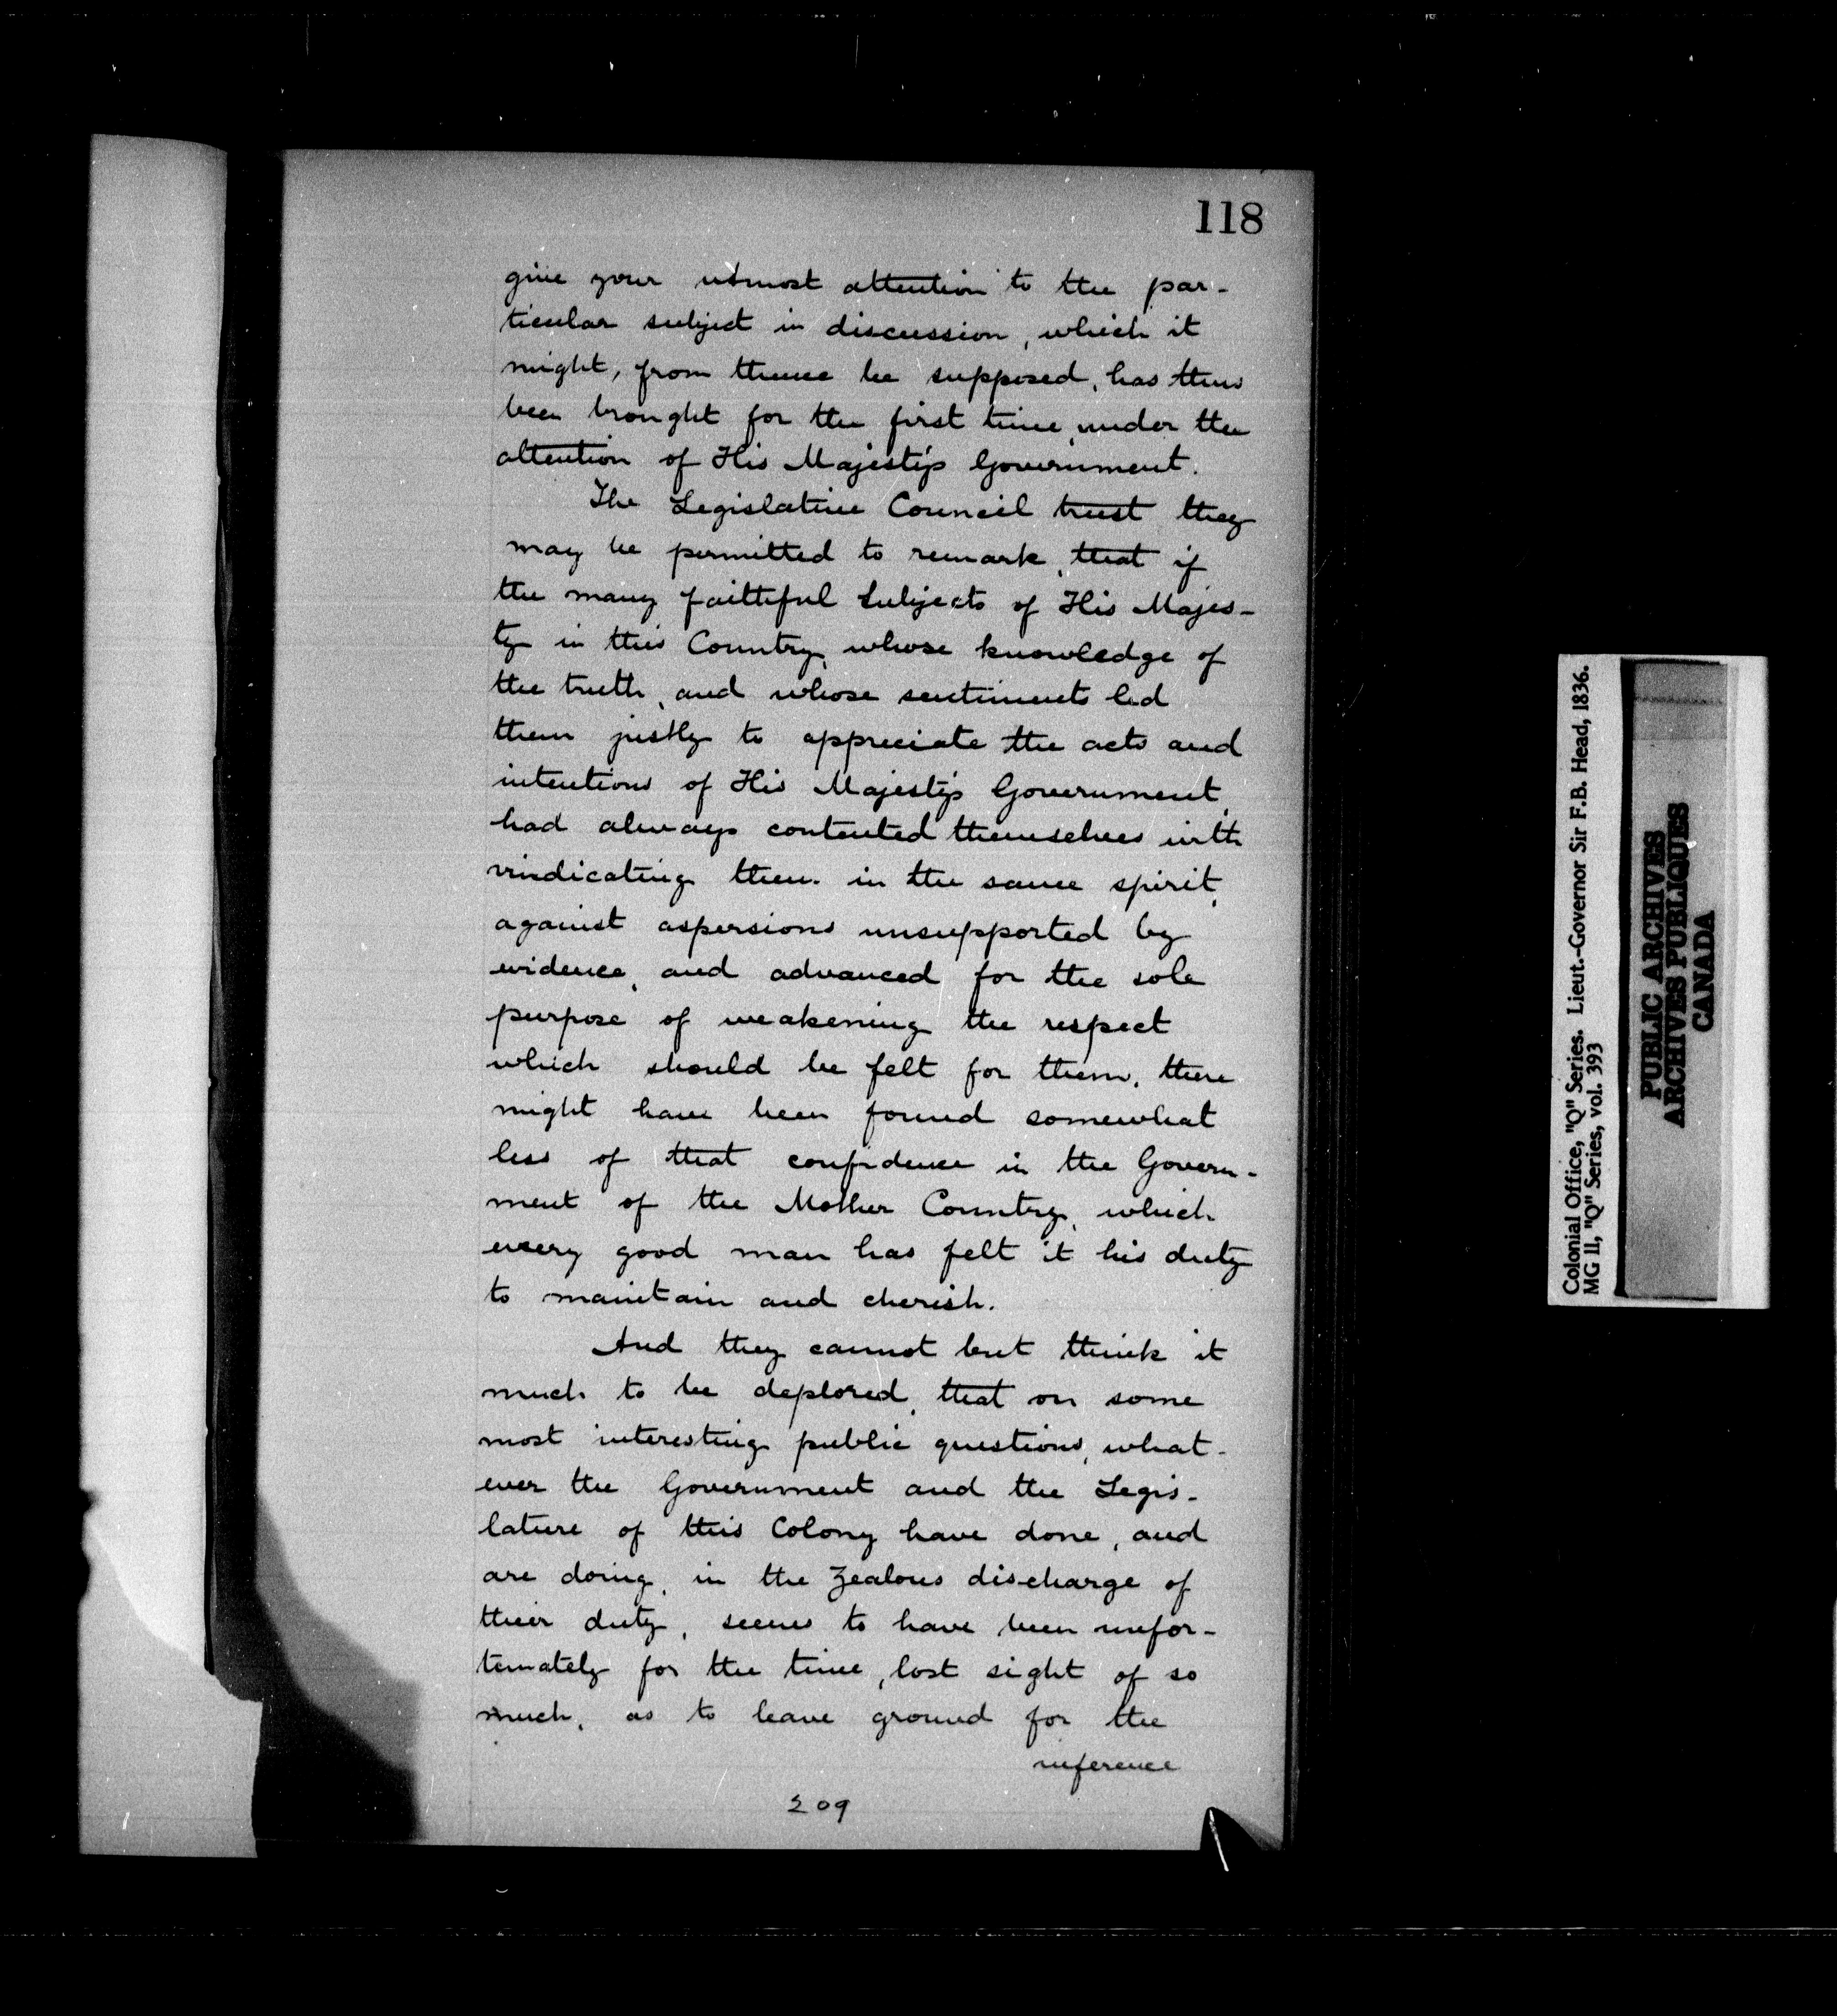 118
give your utmost attention to the par-
ticular subject in discussion, which it
might, from thence be supposed, has thus
been brought for the first time, under the
attention of His Majesty's Government.
The Legislative Council trust they
may be permitted to remark, that if
the many faithful Subjects of His Majes-
ty in this Country, whose knowledge of
the truth, and whose sentiments led
them justly to appreciate the acts and
intentions of His Majesty's Government,
had always contented themselves with
vindicating them in the same spirit,
against aspersions unsupported by
evidence, and advanced for the sole
purpose of weakening the respect
which should be felt for them, there
might have been found somewhat
less of that confidence in the Govern-
ment of the Mother Country, which
every good man has felt it his duty
to maintain and cherish.
And they cannot but think it
much to be deplored, that on some
most interesting public questions, what-
ever the Government and the Legis-
lature of this Colony have done, and
are doing, in the Zealous discharge of
their duty, seems to have been unfor-
tunately for the time, lost sight of so
much, as to leave ground for the
inference
209
Colonial Office, "Q" Series. Lieut.-Governor Sir F.B. Head, 1836.
MG 11, "Q" Series, vol. 393
PUBLIC ARCHIVES
ARCHIVES PUBLIQUES
CANADA